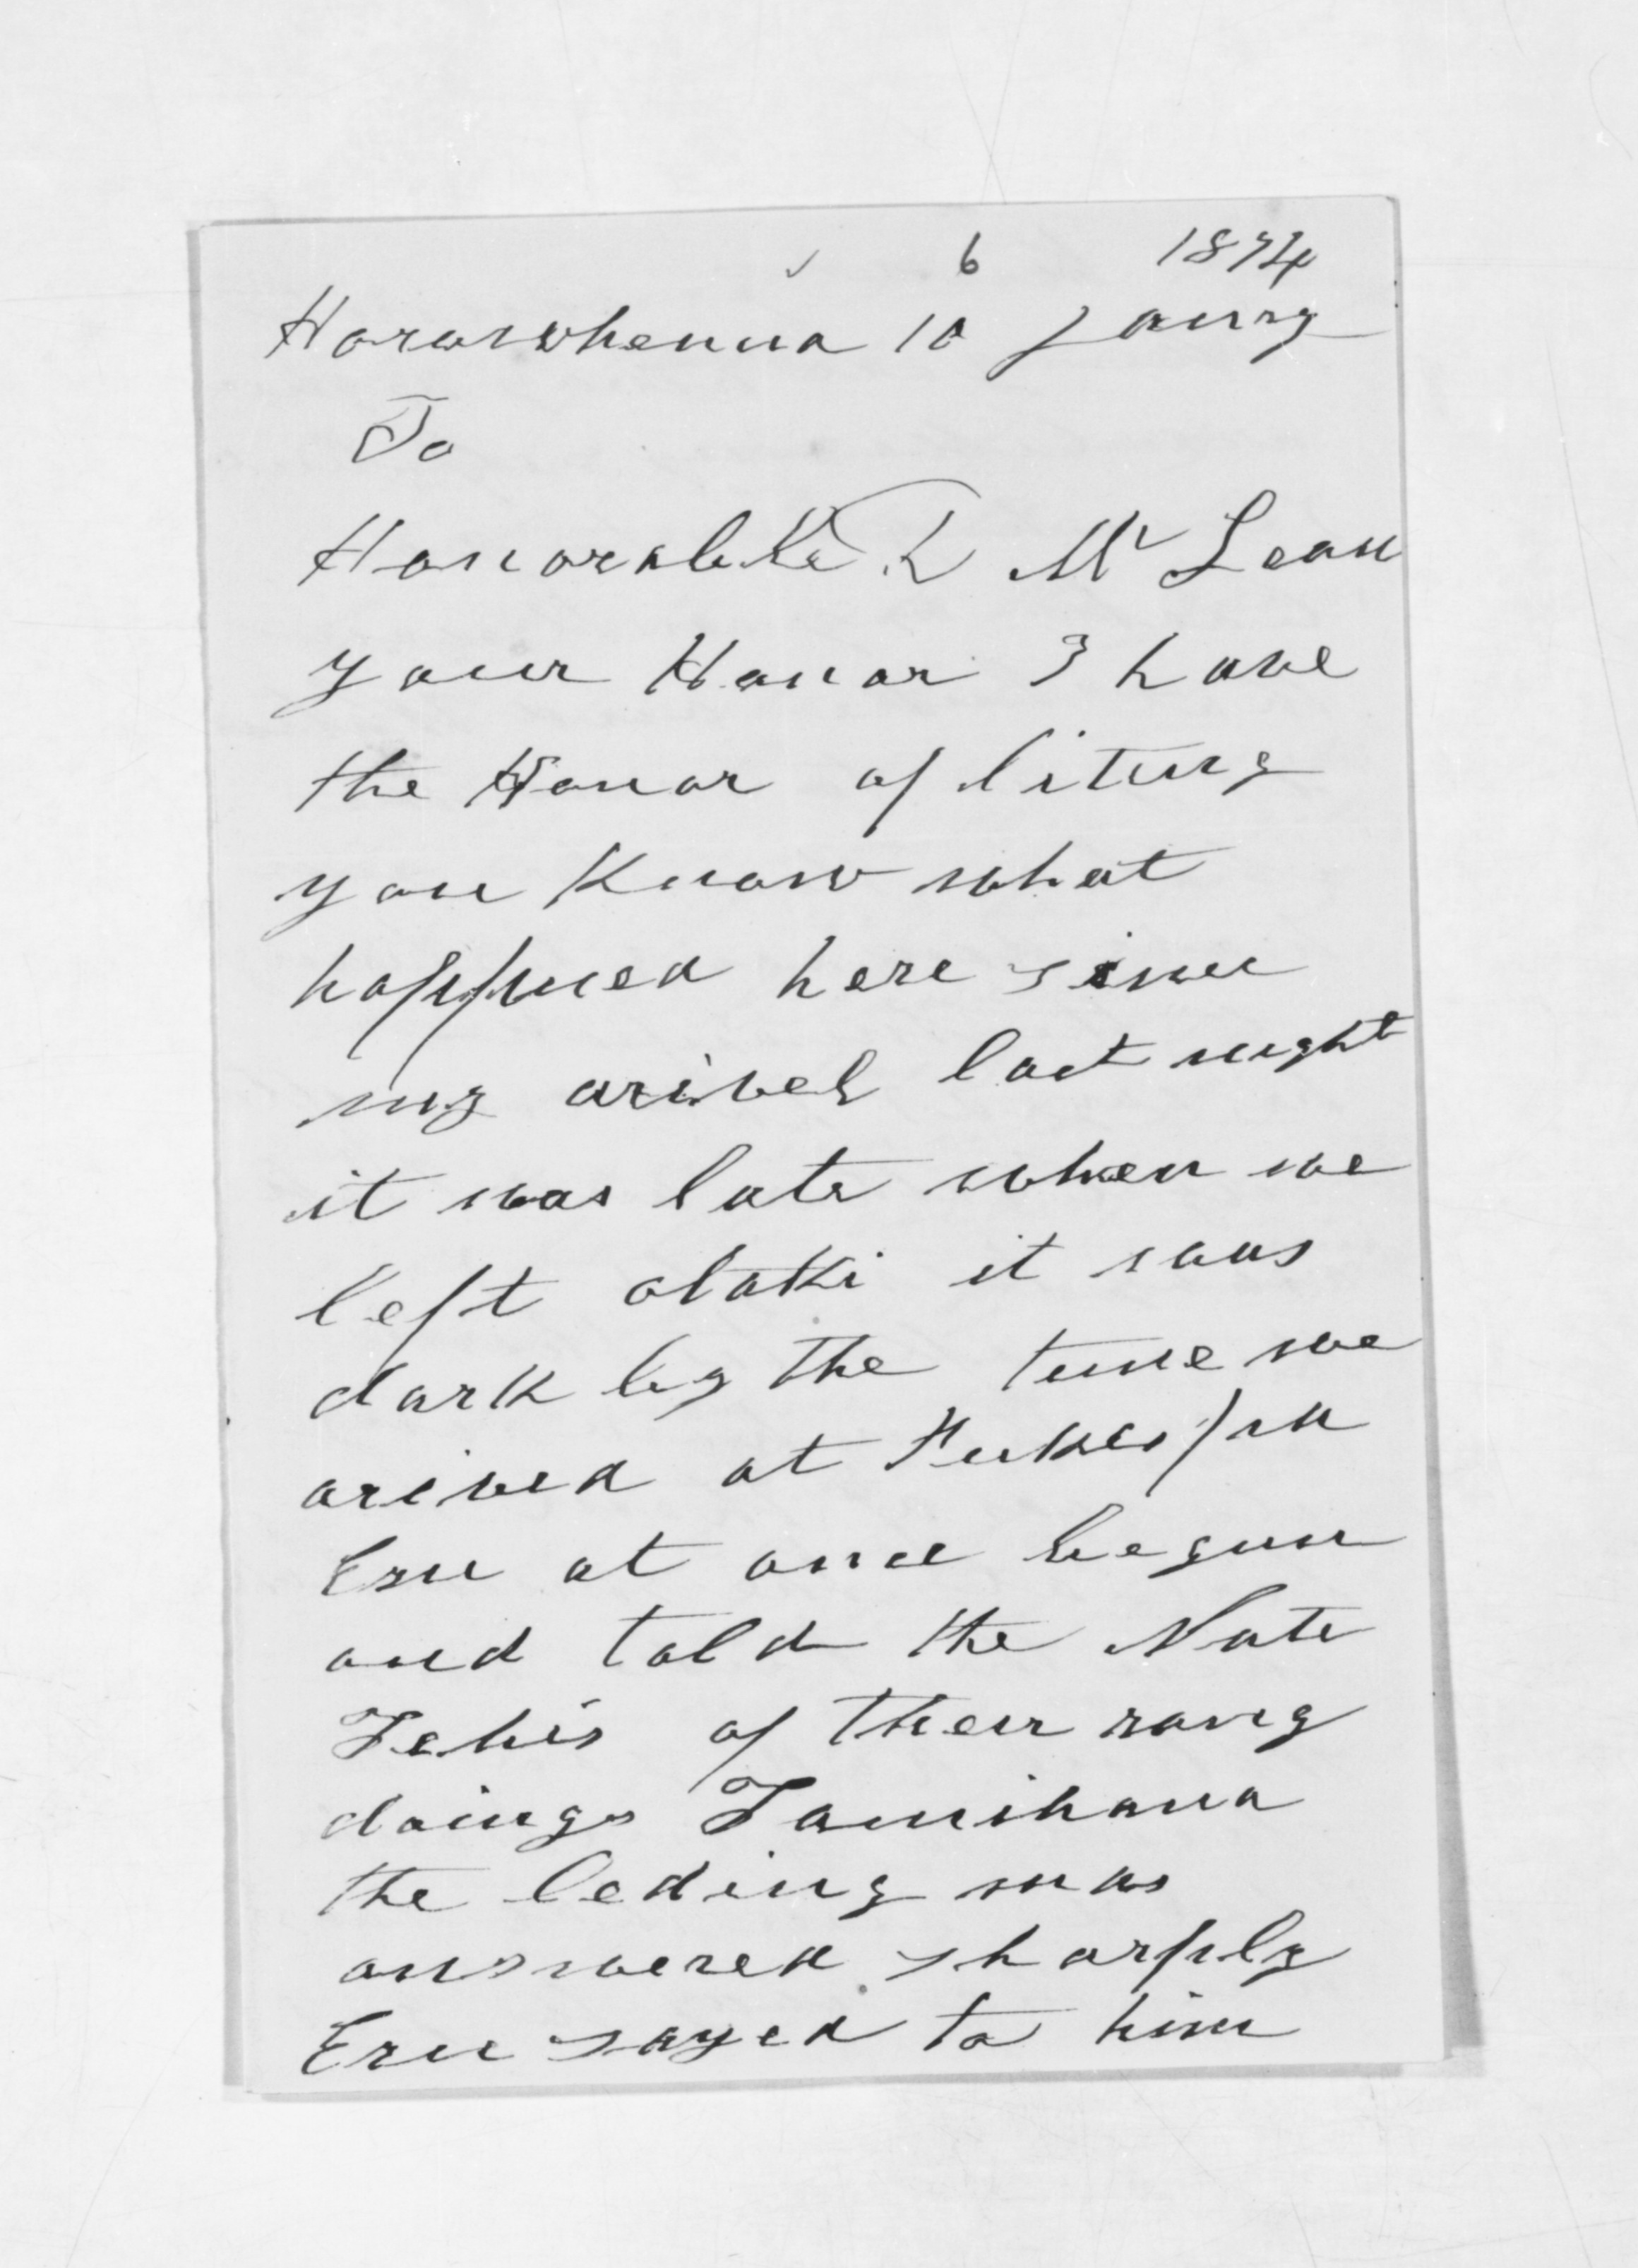 6 1874
Horowhenua 10 Janry
To
Honorable D McLean
your Honor I have
the Honor of liting
you Know what
happned here since
my arivel last night
it was late when we
left otaki it was
dark by the time we
arived at
Eru at once begun
and told the Nate
Tehis of their rong
doings Tamihana
the leding man
answered sharply
Eru sayed to him